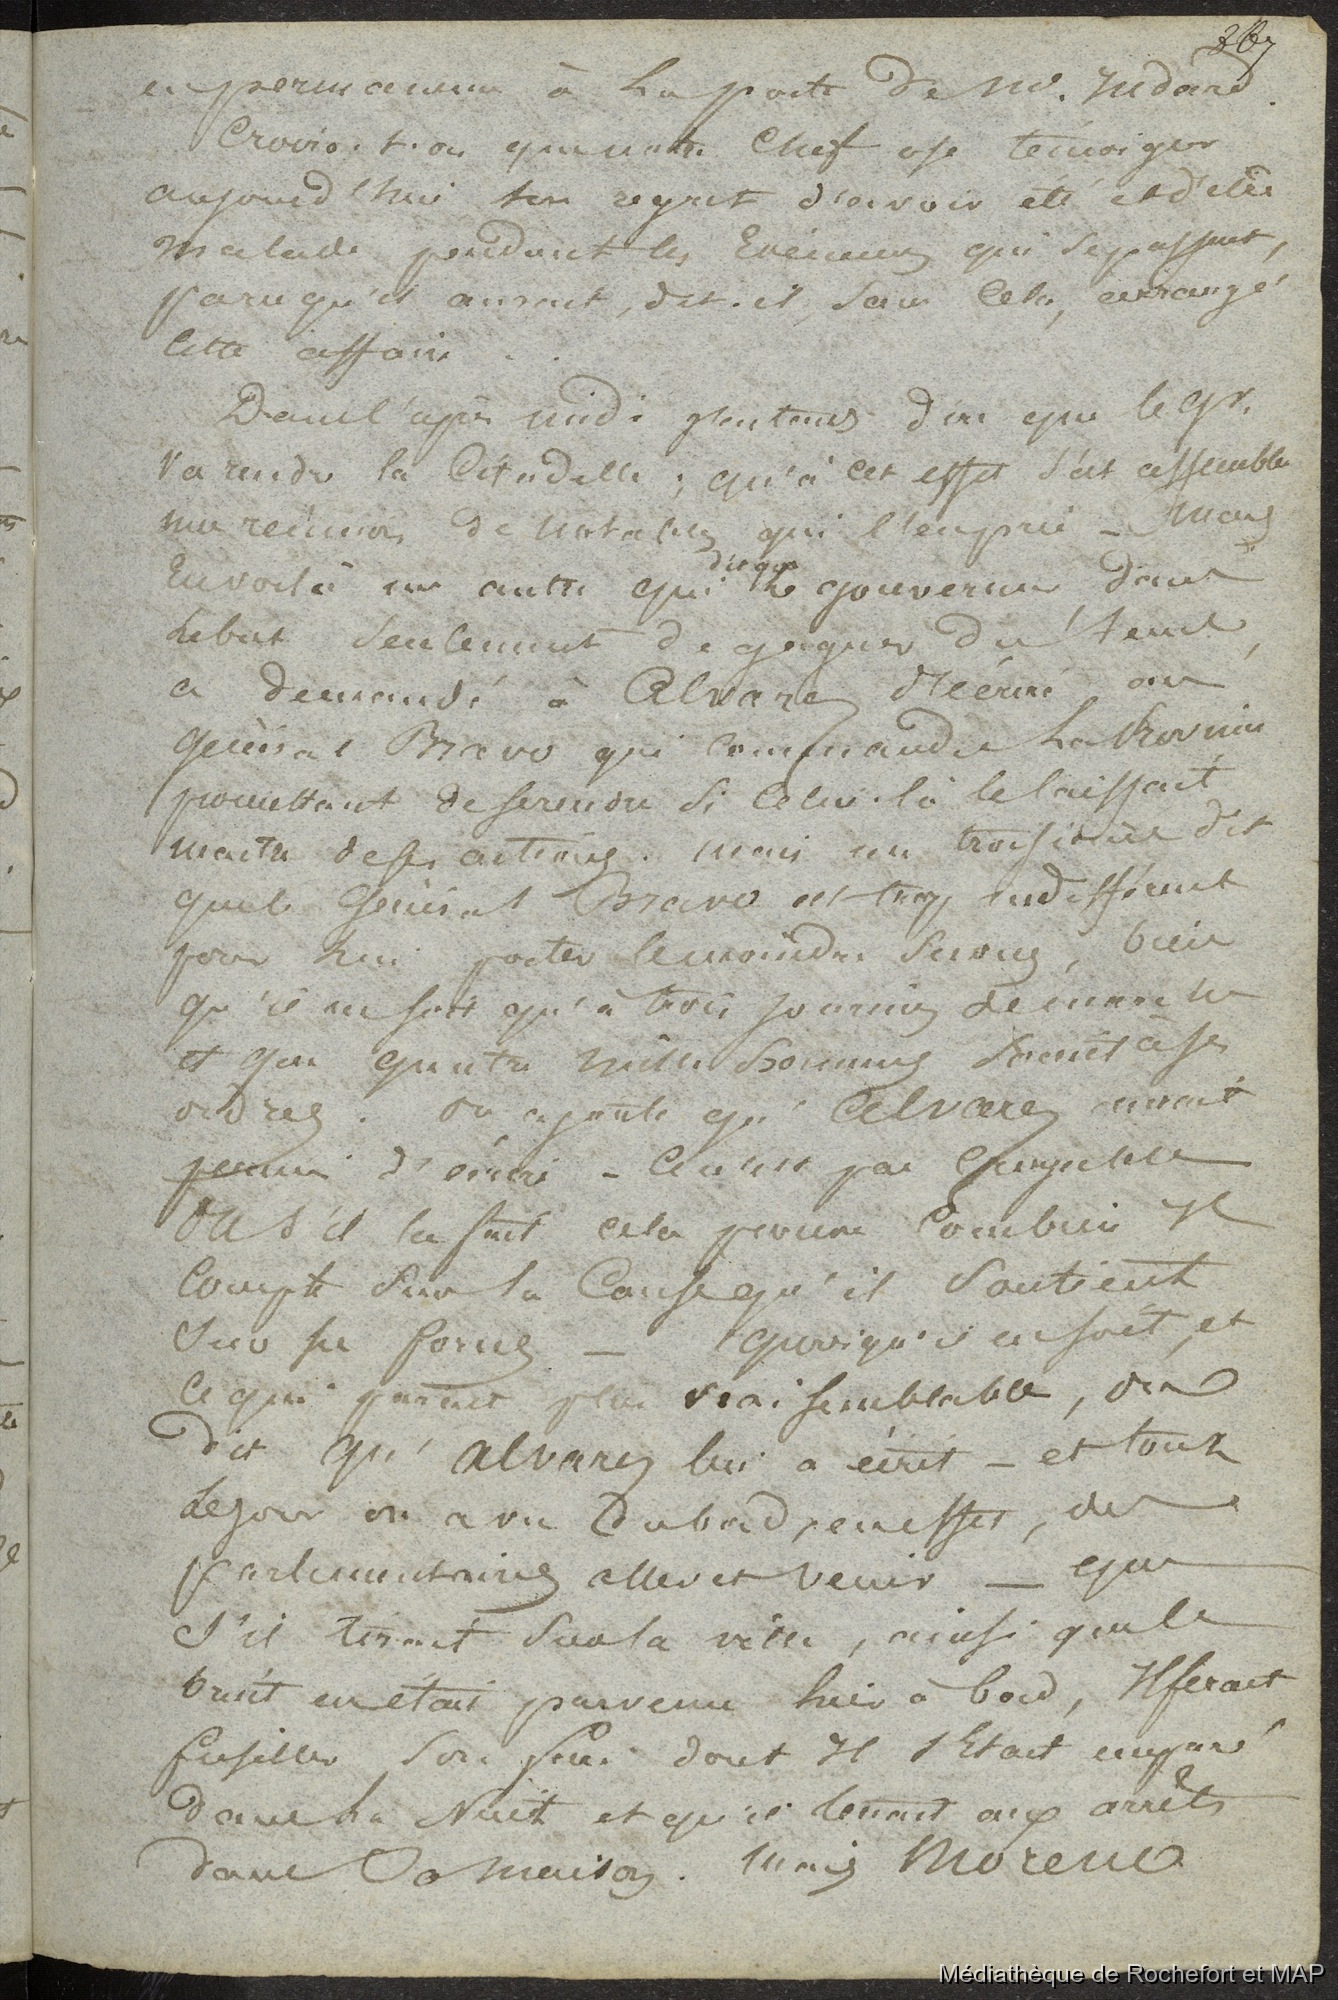 367
en permanence à la porte de Mr. Médard.
Croirio.t.on que notre Chef ose témoigner
aujourd'hui son regret d'avoir été et d'etre
malade pendant les Evénemens qui se passent,
parce qu'il aurait, dit.il, sans Cela, arrangé
Cette affaire . .
Dans l'après midi j'entends dire que le Gr.
va rendre la Citadelle ; qu'à cet effet s'est assemblé
une réunion de notables qui l'en prie _ Mais
En voilà un autre qui dit que le gouverneur dans
le but seulement de gagner du tems,
a demandé à Alvarez d'écrire au
général Bravo qui commande la Province
promettant de se rendre si Celui.là le laissait
maitre de ses actions. mais un troisième dit
que le Général Bravo est trop indifférent
pour lui porter le moindre secours, bien
qu'il ne soit qu'à trois journées de marche
et que quatre mille hommes soient à ses
ordres. On ajoute qu'Alvarez aurait
permis d'écrire _ Ce n'est pas Croyable
Ou s'il l'a fait cela prouve Combien Il
Compte sur la Cause qu'il Soutient
Sur ses forces _ quoiqu'il en soit, et
Ce qui parait plus vraisemblable, on
dit qu'Alvarez lui a écrit _ et tout
le jour on a vu du bord, en effet, des
parlementaires aller et venir _ que
S'il tirait sur la ville, ainsi que le
bruit en était parvenu hier à bord, Il ferait
fusiller son fils dont Il s'Etait emparé
dans la Nuit et qu'il tenait aux arrêts
dans Sa maison. Mais Moreno
Médiathèque de Rochefort et MAP